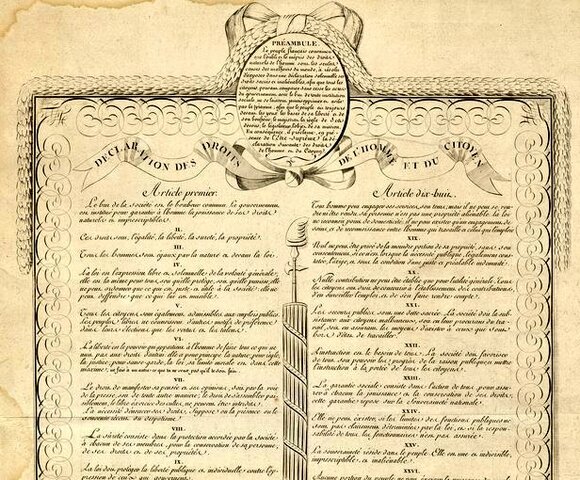 PRÉAMBULE.
Le peuple français convaincu
que l'oubli et le mépris des droits
naturels de l'homme sont les seules
causes des malheurs du monde, a résolu
d'exposer dans une déclaration solemnelle ces
droits sacrés et inaliénables, afin que tous les
citoyens pouvant comparer sans cesse les actes
du gouvernement avec le but de toute institution
sociale ne se laissent jamais opprimer et avilir
par la tyrannie, afin que le peuple ait toujours
devant les yeux les bases de sa liberté et de
son bonheur, le magistrat la règle de ses
devoirs, le législateur l'objet de sa mission.
En conséquence, il proclame, en pré-
sence de l'Être-Suprême la dé-
claration suivante des droits
de l'homme & du Citoyen
DÉCLARATION DES DROITS DE L'HOMME ET DU CITOYEN
Article premier.
Le but de la société est le bonheur commun. Le gouvernement
est institué pour garantir à l'homme la jouissance de ses droits
naturels et imprescriptibles.
II.
Ces droits sont, l'égalité, la liberté, la sureté, la propriété.
III.
Tous les hommes sont égaux par la nature et devant la loi.
IV.
La loi est l'expression libre et solemnelle de la volonté générale;
elle est la même pour tous, soit qu'elle protège, soit qu'elle punisse elle
ne peut ordonner que ce qui est juste et utile à la société: elle ne
peut défendre que ce qui lui est nuisible.
V.
Tous les citoyens sont également admissibles aux emplois publics.
Les peuples libres ne connoissent d'autres motifs de préférence
dans leurs élections que les vertus et les talens.
VI.
La liberté est le pouvoir qui appartient à l'homme de faire tout ce qui ne
nuit pas aux droits d'autrui elle a pour principe la nature, pour règle,
la justice; pour sauve-garde, la loi, sa limite morale est dans cette
maxime: ne fais à un autre ce que tu ne veux pas qu'il te soit fait.
VII.
Le droit de manifester sa pensée et ses opinions, soit par la voie
de la presse, soit de toute autre manière, le droit de s'assembler pai-
siblement, le libre exercice des cultes, ne peuvent être interdits.
La nécessité d'énoncer ces droits suppose ou la présence ou le
souvenir récent du despotisme.
VIII.
La sûreté consiste dans la protection accordée par la Société
à chacun de ses membres pour la conservation de sa personne,
de ses droits et de ses propriétés.
IX.
La loi doit protéger la liberté publique et individuelle contre l'op-
pression de ceux qui gouvernent.
Article dix-huit.
Tout homme peut engager ses services, son tems; mais il ne peut se ven-
dre ni être vendu. Sa personne n'est pas une propriété aliénable. La loi
ne reconnoit point de domesticité; il ne peut exister qu'un engagement de
soins et de reconnoissance entre l'homme qui travaille et celui qui l'emploie
XIX.
Nul ne peut être privé de la moindre portion de sa propriété sans son
consentement, si ce n'est lorsque la nécessité publique légalement cons-
tatée l'exige, et sous la condition d'une juste et préalable indemnité.
XX.
Nulle contribution ne peut être établie que pour l'utilité générale. Tous
les citoyens ont droit de concourir à l'établissement des contributions,
d'en surveiller l'emploi et de s'en faire rendre compte.
XXI.
Les secours publics sont une dette sacrée. La Société doit la sub-
sistance aux citoyens malheureux, soit en leur procurant du tra-
vail, soit en assurant les moyens d'exister à ceux qui sont hors
d'état de travailler.
XXII.
L'instruction est le besoin de tous. La Société doit favoriser
de tout son pouvoir les progrès de la raison publique et mettre
l'instruction à la portée de tous les citoyens.
XXIII.
La garantie sociale consiste dans l'action de tous pour assu-
rer à chacun la jouissance et la conservation de ses droits,
cette garantie repose sur la souveraineté nationale.
XXIV.
Elle ne peut exister, si les limites des fonctions publiques ne
sont pas clairement déterminées par la loi, et si la respon-
sabilité de tous les fonctionnaires n'est pas assurée.
XXV.
La souveraineté réside dans le peuple. Elle est une et indivisible,
imprescriptible et inaliénable.
XXVI.
Aucune portion du peuple ne peut exercer la puissance